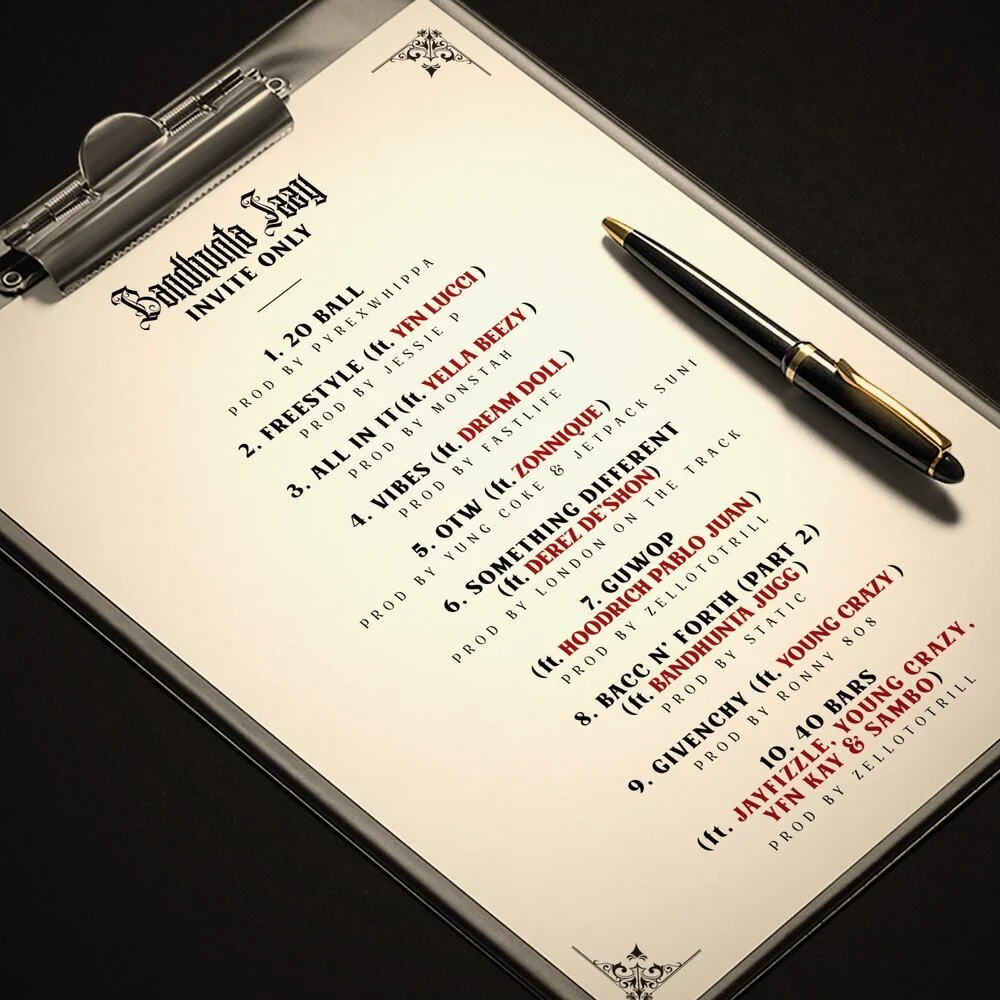 Bandhunta Izzy
INVITE ONLY
1. 20 BALL
PROD BY PYREXWHIPPA
2. FREESTYLE (ft. YFN LUCCI)
PROD BY JESSIE P
3. ALL IN IT(ft. YELLA BEEZY)
PROD BY MONSTAH
4. VIBES (ft. DREAM DOLL)
PROD BY FASTLIFE
5. OTW (ft. ZONNIQUE)
PROD BY YUNG COKE & JETPACK SUNI
6. SOMETHING DIFFERENT
(ft. DEREZ DE'SHON)
PROD BY LONDON ON THE TRACK
7. GUWOP
(ft. HOODRICH PABLO JUAN)
PROD BY ZELLOTOTRILL
8. BACC N' FORTH (PART 2)
(ft. BANDHUNTA JUGG)
PROD BY STATIC
9. GIVENCHY (ft. YOUNG CRAZY)
PROD BY RONNY 808
10. 40 BARS
(ft. JAYFIZZLE, YOUNG CRAZY,
YFN KAY & SAMBO)
PROD BY ZELLOTOTRILL